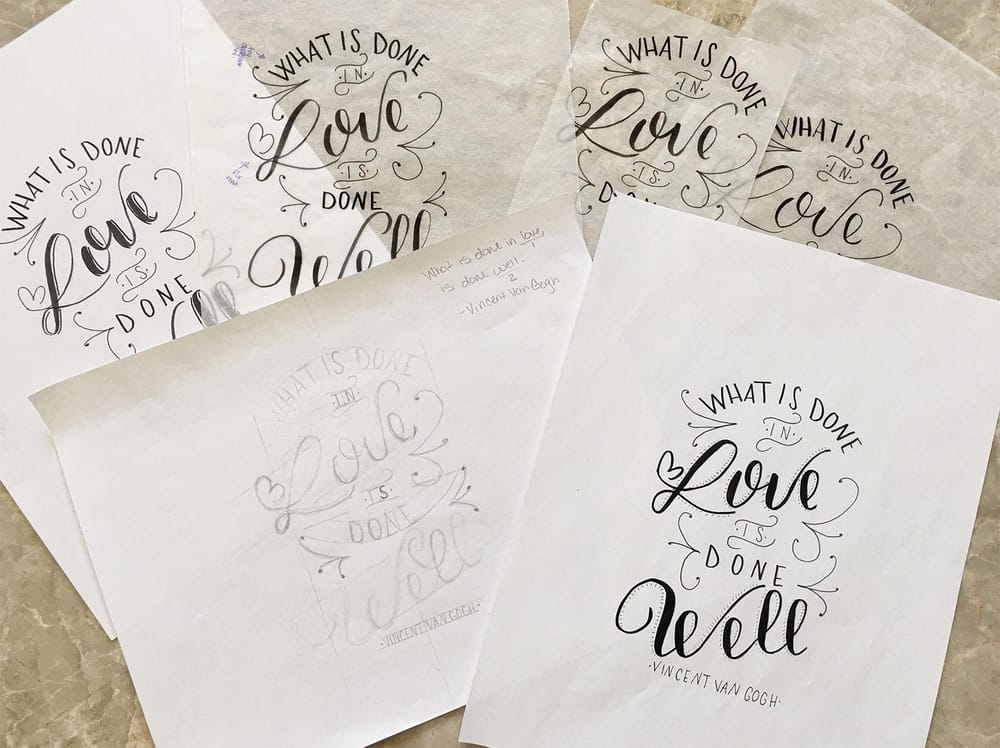 WHAT IS DONE
IN
Love
IS
DONE
Well
WHAT IS DONE
IN
Love
IS
DONE
Well
WHAT IS DONE
IN
Love
IS
DONE
WHAT IS DONE
IN
Love
What is done in love,
1
is done well.
2
-Vincent Van Gogh
WHAT IS DONE
IN
Love
IS
DONE
Well
-VINCENT VAN GOGH-
WHAT IS DONE
·IN·
Love
·IS·
DONE
Well
·VINCENT VAN GOGH·